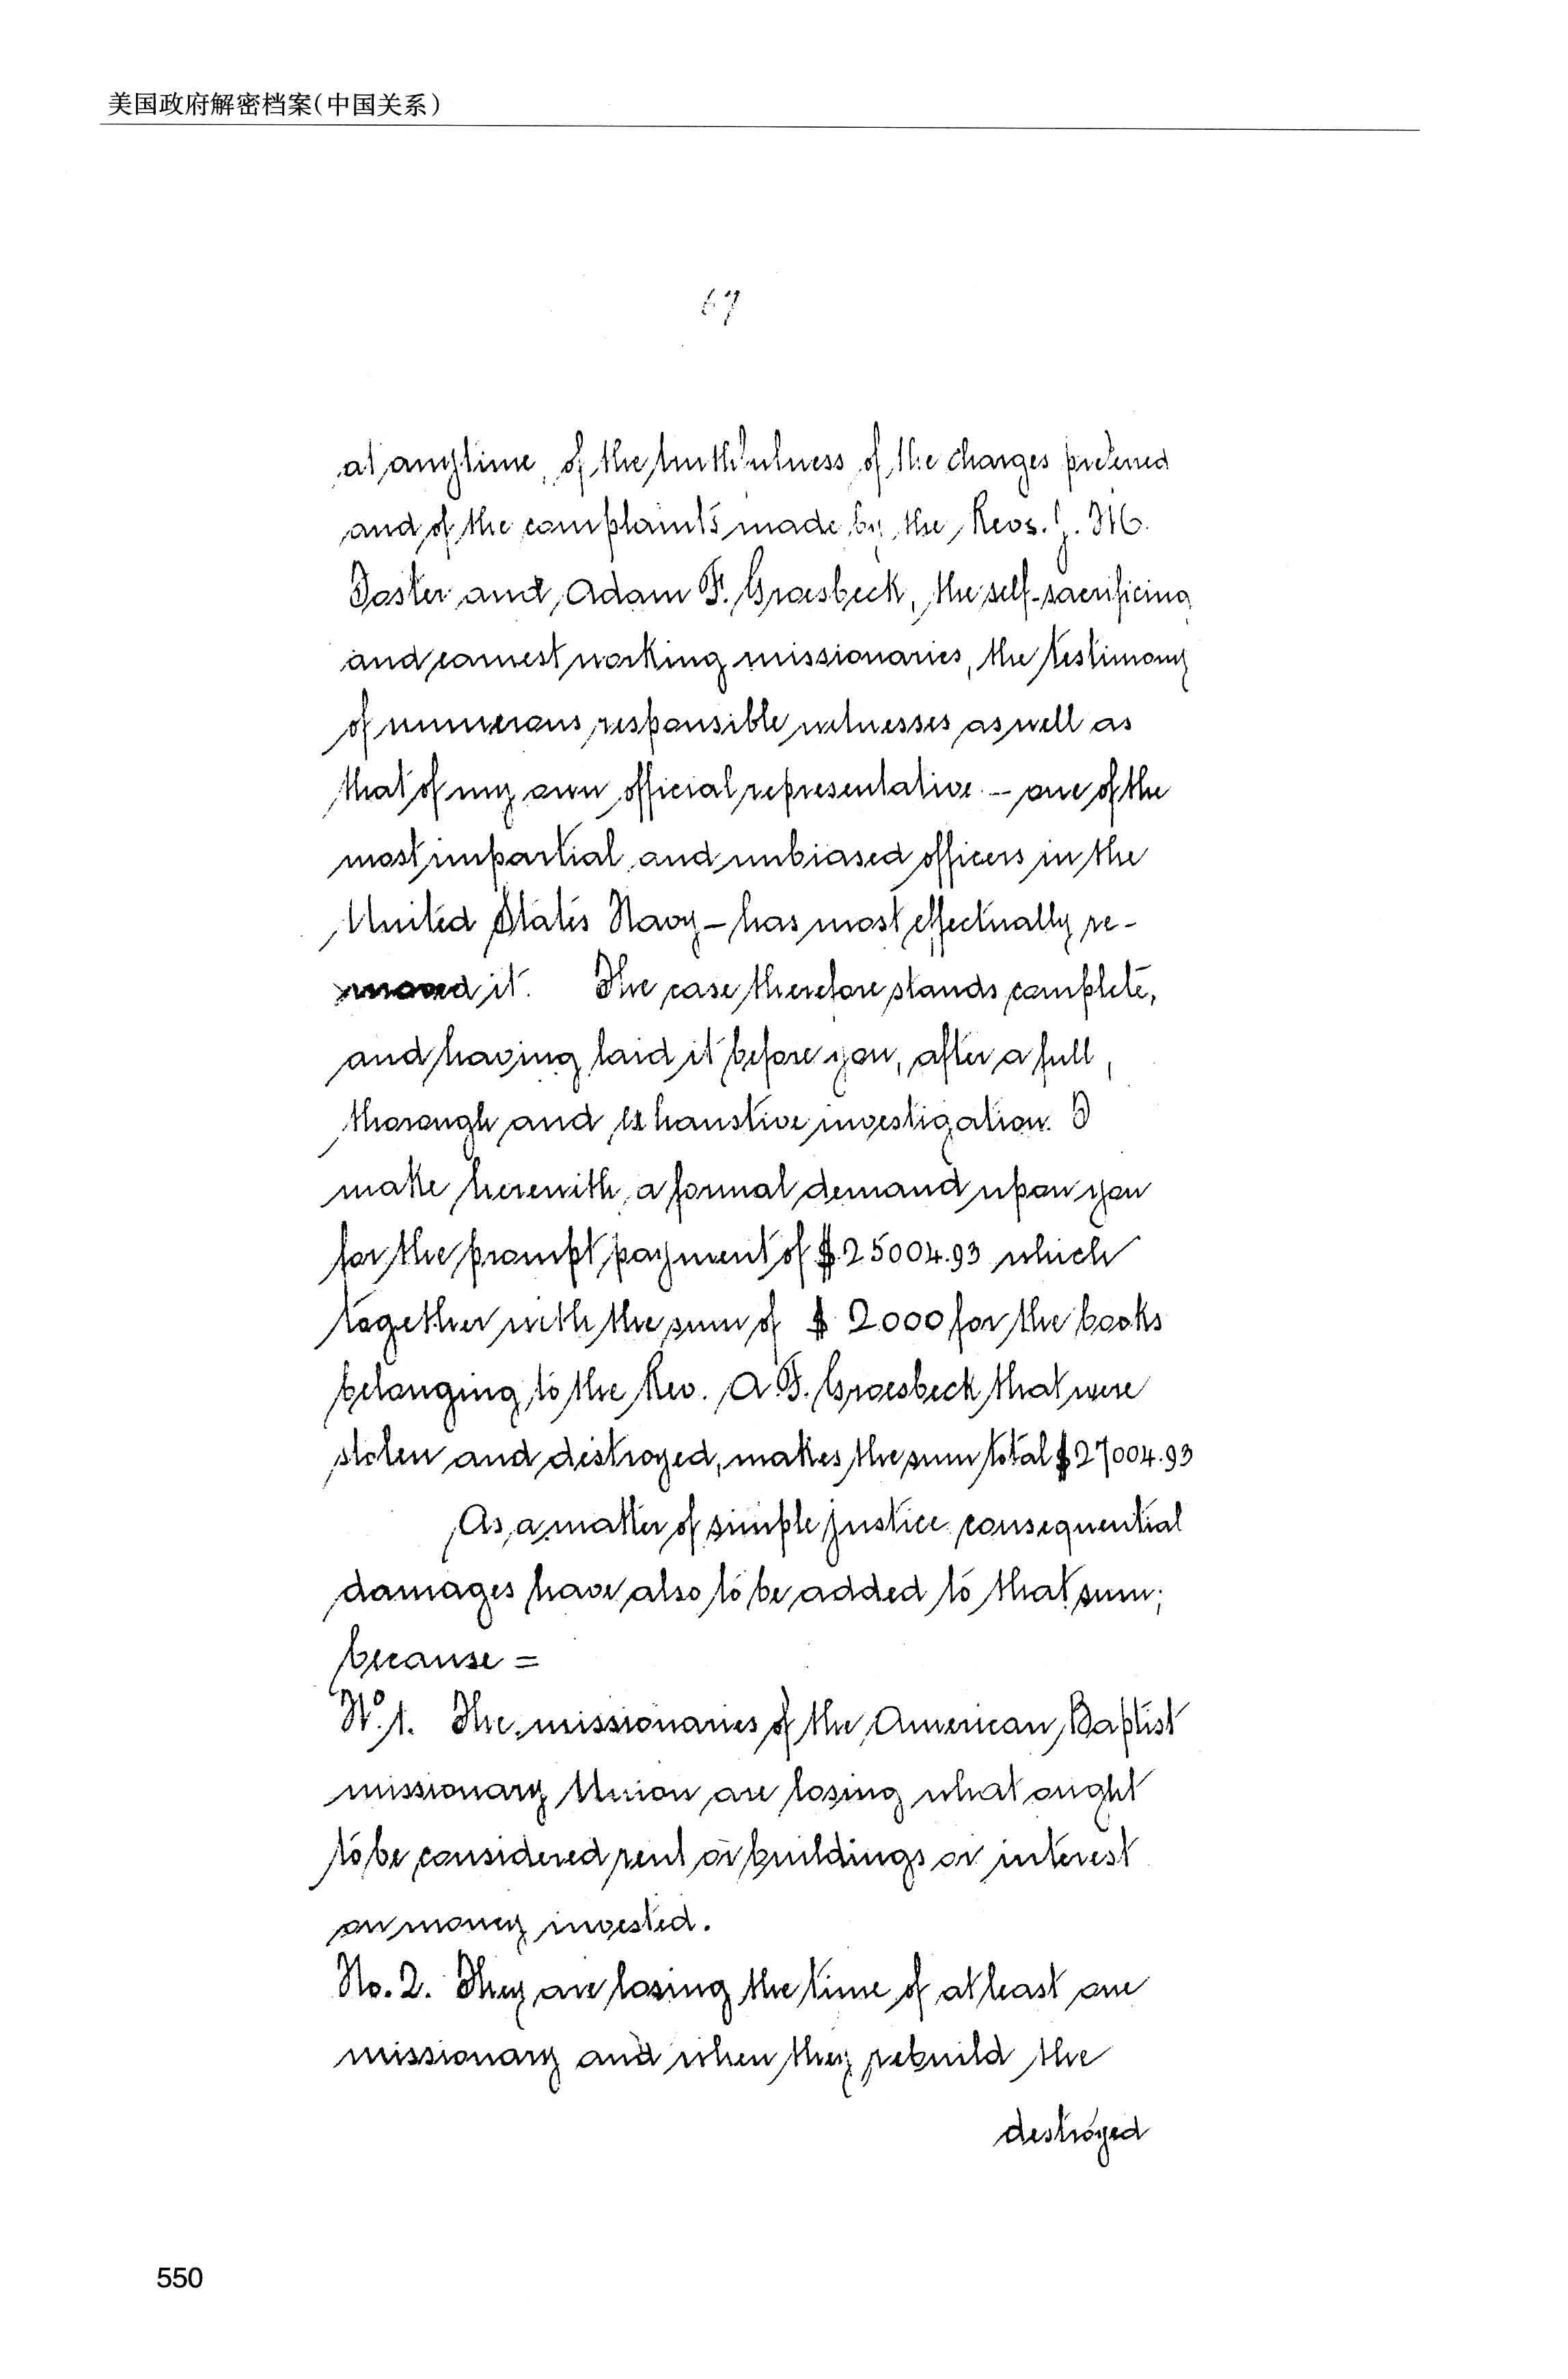 美国政府解密档案(中国关系)
67
at any time, of the truthfulness of the charges preferred
and of the complaints made by the Revs. J. M.
Foster and Adam F. Groesbeck, the self-sacrificing
and earnest working missionaries, the testimony
of numerous responsible witnesses as well as
that of my own official representative — one of the
most impartial and unbiased officers in the
United States Navy — has most effectually re-
moved it. The case therefore stands complete,
and having laid it before you, after a full,
thorough and exhaustive investigation. I
make herewith a formal demand upon you
for the prompt payment of $25004.93 which
together with the sum of $ 2000 for the books
belonging to the Rev. A. F. Groesbeck that were
stolen and destroyed, makes the sum total $27004.93
As a matter of simple justice consequential
damages have also to be added to that sum;
because =
No. 1. The missionaries of the American Baptist
missionary Union are losing what ought
to be considered rent or buildings or interest
on money invested.
No. 2. They are losing the time of at least one
missionary and when they rebuild the
destroyed
550